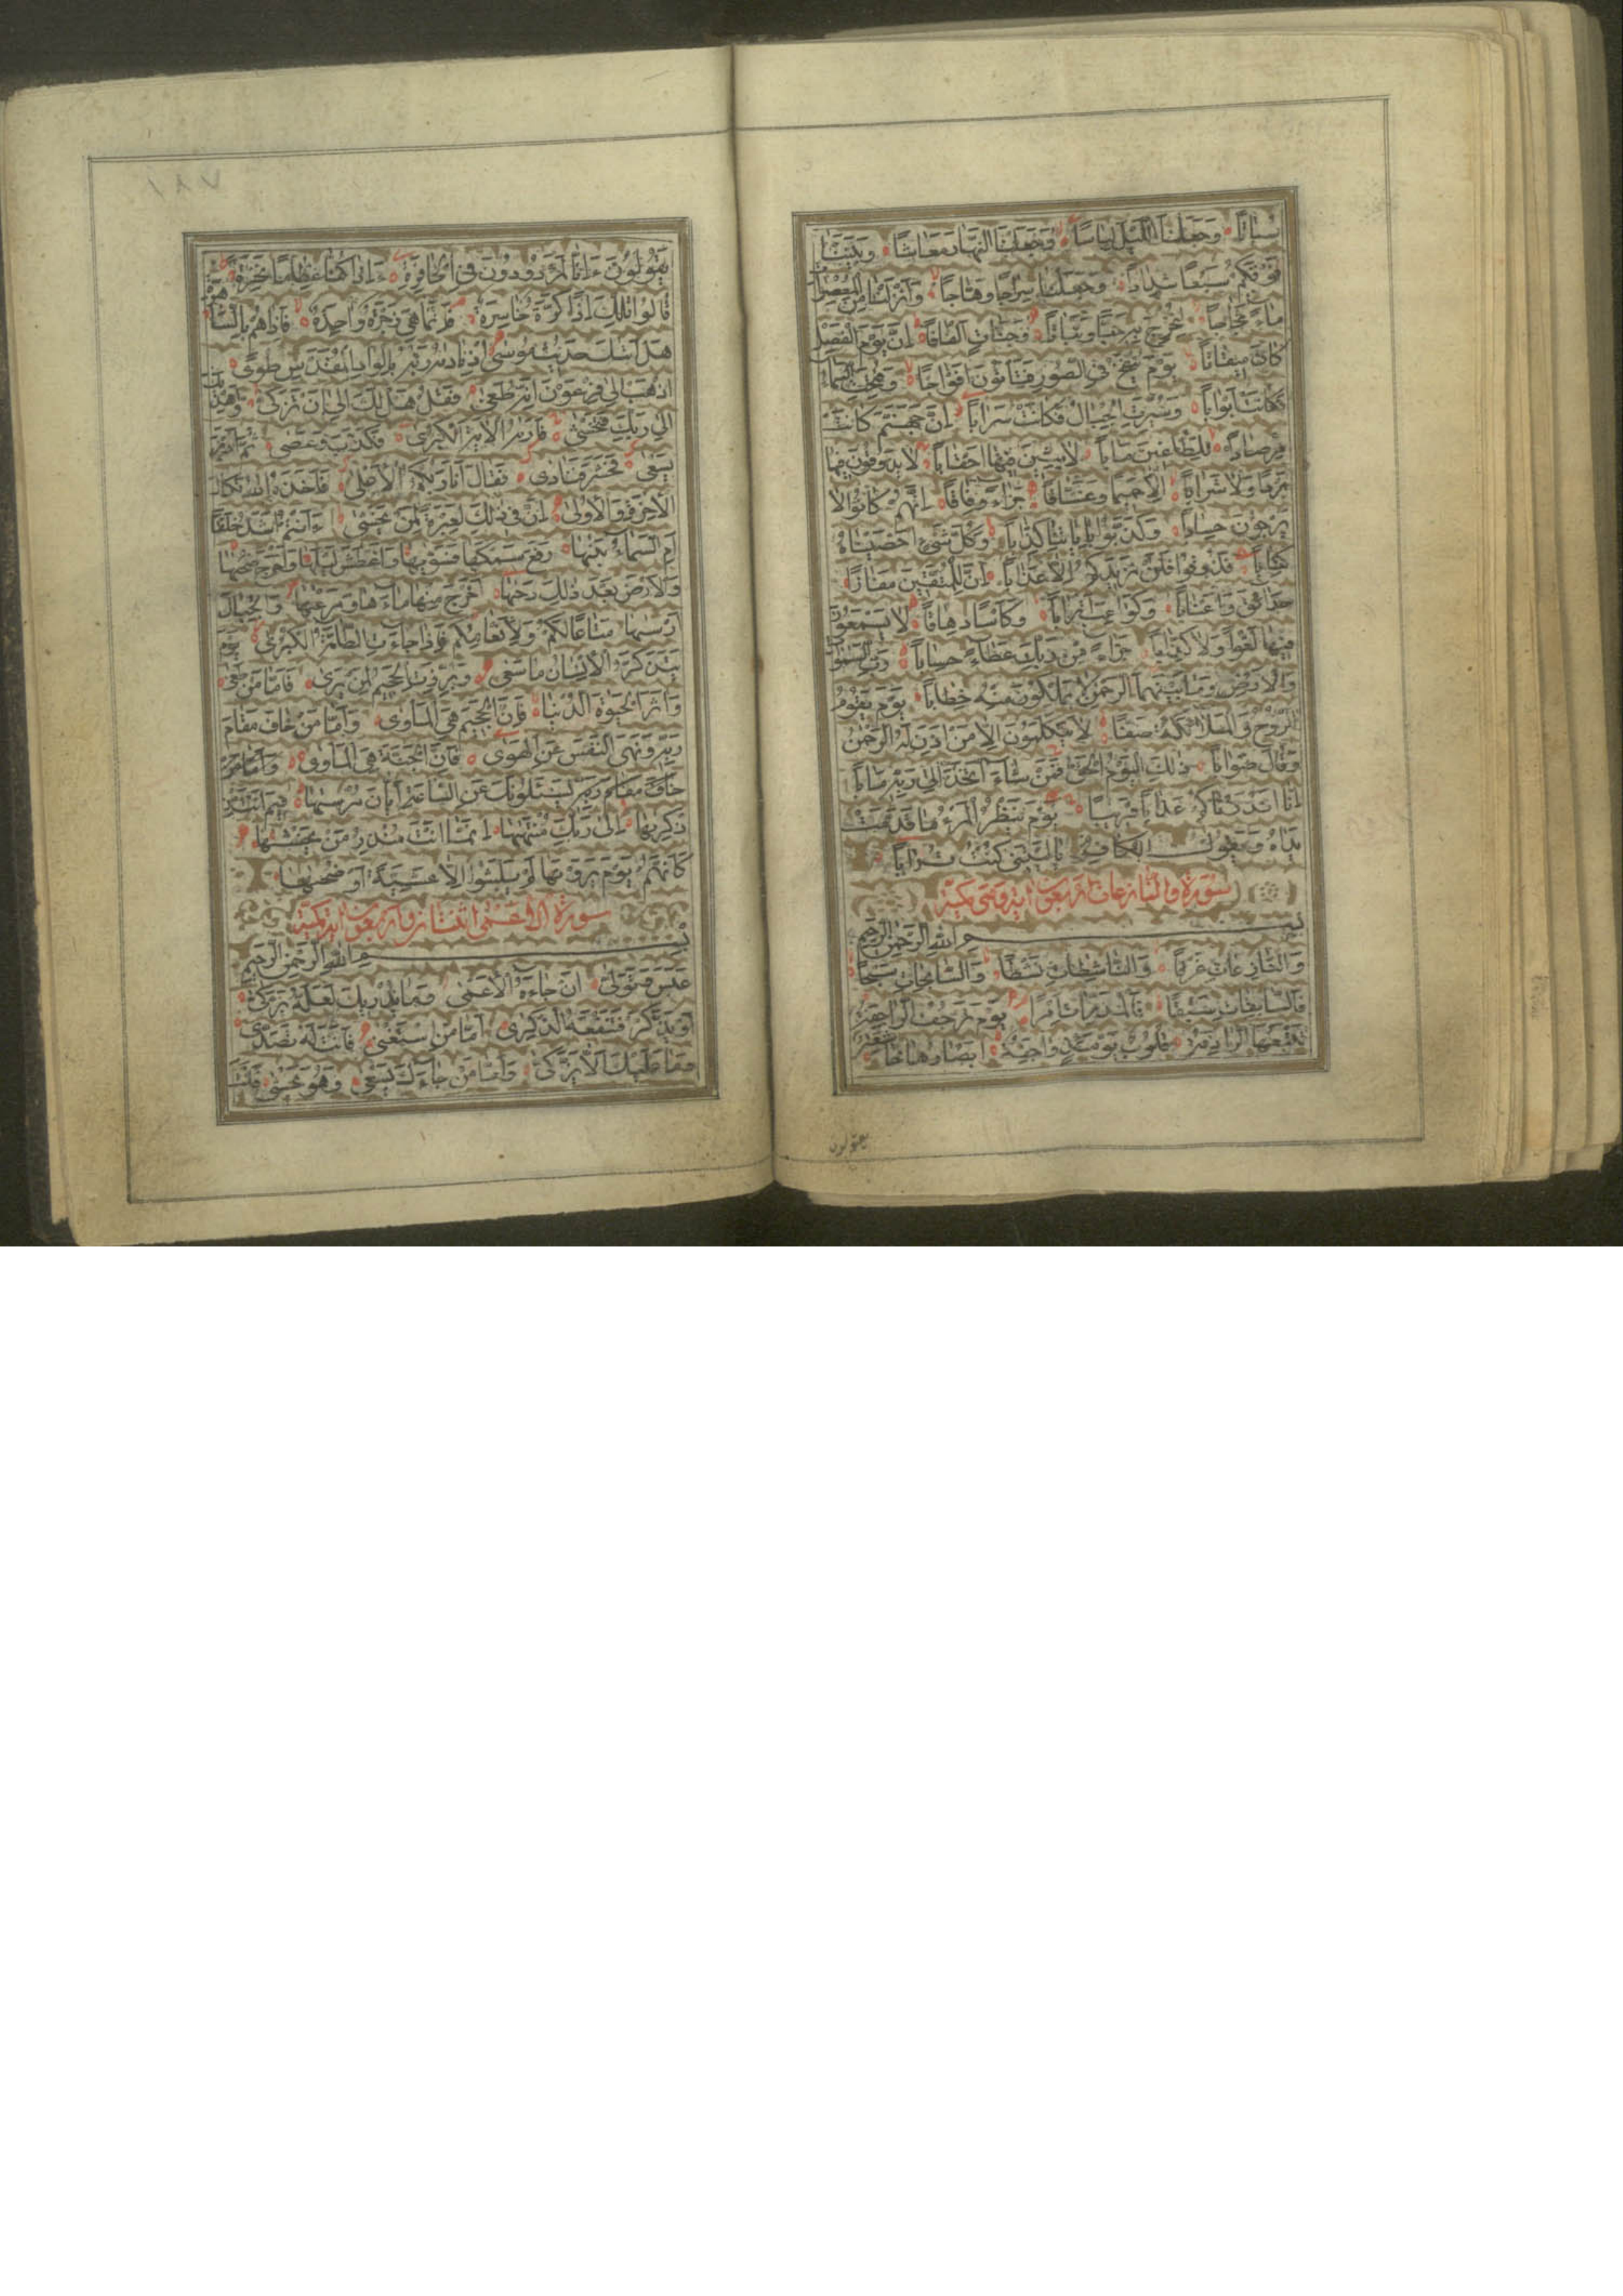 سُبَاتًا وَجَعَلْنَا اللَّيْلَ لِبَاسًا وَجَعَلْنَا النَّهَارَ مَعَاشًا وَبَنَيْنَا
فَوْقَكُمْ سَبْعًا شِدَادًا وَجَعَلْنَا سِرَاجًا وَهَّاجًا وَأَنْزَلْنَا مِنَ الْمُعْصِرَاتِ
مَاءً ثَجَّاجًا لِنُخْرِجَ بِهِ حَبًّا وَنَبَاتًا وَجَنَّاتٍ أَلْفَافًا إِنَّ يَوْمَ الْفَصْلِ
كَانَ مِيقَاتًا يَوْمَ يُنْفَخُ فِي الصُّورِ فَتَأْتُونَ أَفْوَاجًا وَفُتِحَتِ السَّمَاءُ
فَكَانَتْ أَبْوَابًا وَسُيِّرَتِ الْجِبَالُ فَكَانَتْ سَرَابًا إِنَّ جَهَنَّمَ كَانَتْ
مِرْصَادًا لِلطَّاغِينَ مَآبًا لَابِثِينَ فِيهَا أَحْقَابًا لَا يَذُوقُونَ فِيهَا
بَرْدًا وَلَا شَرَابًا إِلَّا حَمِيمًا وَغَسَّاقًا جَزَاءً وِفَاقًا إِنَّهُمْ كَانُوا لَا
يَرْجُونَ حِسَابًا وَكَذَّبُوا بِآيَاتِنَا كِذَّابًا وَكُلَّ شَيْءٍ أَحْصَيْنَاهُ
كِتَابًا فَذُوقُوا فَلَنْ نَزِيدَكُمْ إِلَّا عَذَابًا إِنَّ لِلْمُتَّقِينَ مَفَازًا
حَدَائِقَ وَأَعْنَابًا وَكَوَاعِبَ أَتْرَابًا وَكَأْسًا دِهَاقًا لَا يَسْمَعُونَ
فِيهَا لَغْوًا وَلَا كِذَّابًا جَزَاءً مِنْ رَبِّكَ عَطَاءً حِسَابًا رَبِّ السَّمٰوَاتِ
وَالْأَرْضِ وَمَا بَيْنَهُمَا الرَّحْمٰنِ لَا يَمْلِكُونَ مِنْهُ خِطَابًا يَوْمَ يَقُومُ
الرُّوحُ وَالْمَلَائِكَةُ صَفًّا لَا يَتَكَلَّمُونَ إِلَّا مَنْ أَذِنَ لَهُ الرَّحْمٰنُ
وَقَالَ صَوَابًا ذٰلِكَ الْيَوْمُ الْحَقُّ فَمَنْ شَاءَ اتَّخَذَ إِلَى رَبِّهِ مَآبًا
إِنَّا أَنْذَرْنَاكُمْ عَذَابًا قَرِيبًا يَوْمَ يَنْظُرُ الْمَرْءُ مَا قَدَّمَتْ
يَدَاهُ وَيَقُولُ الْكَافِرُ يَا لَيْتَنِي كُنْتُ تُرَابًا
سورة والنازعات اربعون اية وهي مكية
بِسْمِ اللهِ الرَّحْمٰنِ الرَّحِيمِ
وَالنَّازِعَاتِ غَرْقًا وَالنَّاشِطَاتِ نَشْطًا وَالسَّابِحَاتِ سَبْحًا
فَالسَّابِقَاتِ سَبْقًا فَالْمُدَبِّرَاتِ أَمْرًا يَوْمَ تَرْجُفُ الرَّاجِفَةُ
تَتْبَعُهَا الرَّادِفَةُ قُلُوبٌ يَوْمَئِذٍ وَاجِفَةٌ أَبْصَارُهَا خَاشِعَةٌ
يقولون
١٨٧
يَقُولُونَ ءَإِنَّا لَمَرْدُودُونَ فِي الْحَافِرَةِ ءَإِذَا كُنَّا عِظَامًا نَخِرَةً
قَالُوا تِلْكَ إِذًا كَرَّةٌ خَاسِرَةٌ فَإِنَّمَا هِيَ زَجْرَةٌ وَاحِدَةٌ فَإِذَا هُمْ بِالسَّاهِرَةِ
هَلْ أَتٰيكَ حَدِيثُ مُوسٰى إِذْ نَادٰيهُ رَبُّهُ بِالْوَادِ الْمُقَدَّسِ طُوًى
اذْهَبْ إِلَى فِرْعَوْنَ إِنَّهُ طَغٰى فَقُلْ هَلْ لَكَ إِلَى أَنْ تَزَكّٰى وَأَهْدِيَكَ
إِلَى رَبِّكَ فَتَخْشٰى فَأَرٰيهُ الْآيَةَ الْكُبْرٰى فَكَذَّبَ وَعَصٰى ثُمَّ أَدْبَرَ
يَسْعٰى فَحَشَرَ فَنَادٰى فَقَالَ أَنَا رَبُّكُمُ الْأَعْلٰى فَأَخَذَهُ اللهُ نَكَالَ
الْآخِرَةِ وَالْأُولٰى إِنَّ فِي ذٰلِكَ لَعِبْرَةً لِمَنْ يَخْشٰى ءَأَنْتُمْ أَشَدُّ خَلْقًا
أَمِ السَّمَاءُ بَنٰيهَا رَفَعَ سَمْكَهَا فَسَوّٰيهَا وَأَغْطَشَ لَيْلَهَا وَأَخْرَجَ ضُحٰيهَا
وَالْأَرْضَ بَعْدَ ذٰلِكَ دَحٰيهَا أَخْرَجَ مِنْهَا مَاءَهَا وَمَرْعٰيهَا وَالْجِبَالَ
أَرْسٰيهَا مَتَاعًا لَكُمْ وَلِأَنْعَامِكُمْ فَإِذَا جَاءَتِ الطَّامَّةُ الْكُبْرٰى يَوْمَ
يَتَذَكَّرُ الْإِنْسَانُ مَا سَعٰى وَبُرِّزَتِ الْجَحِيمُ لِمَنْ يَرٰى فَأَمَّا مَنْ طَغٰى
وَآثَرَ الْحَيٰوةَ الدُّنْيَا فَإِنَّ الْجَحِيمَ هِيَ الْمَأْوٰى وَأَمَّا مَنْ خَافَ مَقَامَ
رَبِّهِ وَنَهَى النَّفْسَ عَنِ الْهَوٰى فَإِنَّ الْجَنَّةَ هِيَ الْمَأْوٰى وَأَمَّا مَنْ
خَافَ مَقَامَ رَبِّهِ يَسْئَلُونَكَ عَنِ السَّاعَةِ أَيَّانَ مُرْسٰيهَا فِيمَ أَنْتَ مِنْ
ذِكْرٰيهَا إِلَى رَبِّكَ مُنْتَهٰيهَا إِنَّمَا أَنْتَ مُنْذِرُ مَنْ يَخْشٰيهَا
كَأَنَّهُمْ يَوْمَ يَرَوْنَهَا لَمْ يَلْبَثُوا إِلَّا عَشِيَّةً أَوْ ضُحٰيهَا
سورة الاعمى اثنتان واربعون اية مكية
بِسْمِ اللهِ الرَّحْمٰنِ الرَّحِيمِ
عَبَسَ وَتَوَلّٰى أَنْ جَاءَهُ الْأَعْمٰى وَمَا يُدْرِيكَ لَعَلَّهُ يَزَّكّٰى
أَوْ يَذَّكَّرُ فَتَنْفَعَهُ الذِّكْرٰى أَمَّا مَنِ اسْتَغْنٰى فَأَنْتَ لَهُ تَصَدّٰى
وَمَا عَلَيْكَ أَلَّا يَزَّكّٰى وَأَمَّا مَنْ جَاءَكَ يَسْعٰى وَهُوَ يَخْشٰى فَأَنْتَ